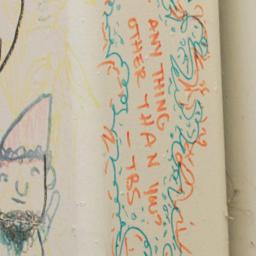 ANYTHING
OTHER THAN YW?
- TBS